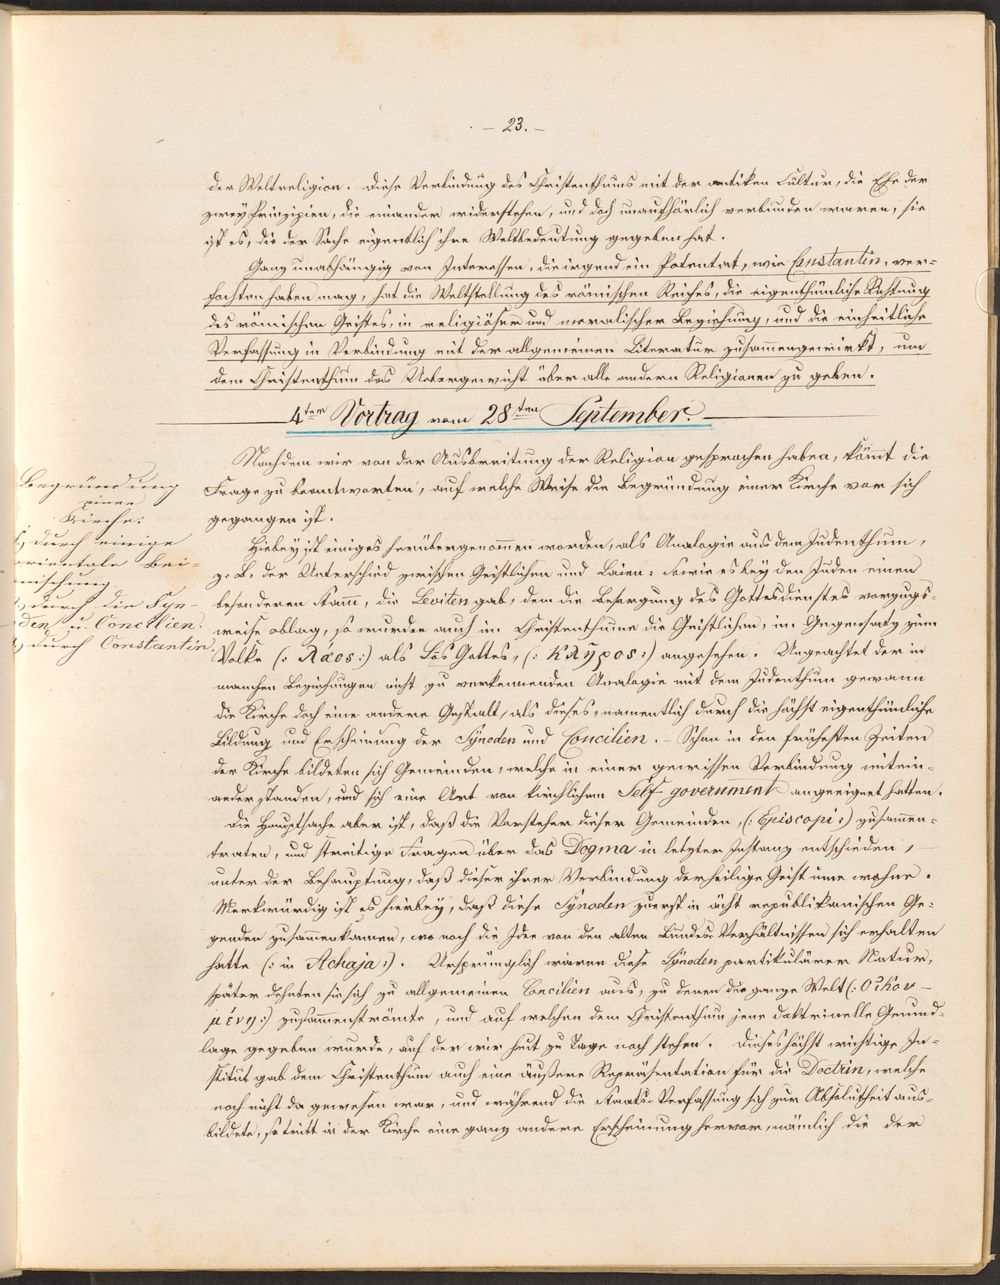 – 23. –
der Weltreligion. Diese Verbindung des Christenthums mit der antiken Cultur, die Ehe der
zwey Prinzipien, die einander widerstehen, und doch unaufhörlich verbunden waren, sie
ist es, die der Sache eigentlich ihre Weltbedeutung gegeben hat.
Ganz unabhängig von Interessen, die irgend ein Potentat, wie Constantin, ver-
fochten haben mag, hat die Weltstellung des römischen Reiches, die eigenthümliche Richtung
des römischen Geistes, in religiöser und moralischer Beziehung, und die einheitliche
Verfassung in Verbindung mit der allgemeinen Literatur zusammengewirkt, um
dem Christenthum das Uebergewicht über alle andern Religionen zu geben.
4ter Vortrag vom 28ten September.
Nachdem wir von der Ausbreitung der Religion gesprochen haben, kömt die
Frage zu beantworten, auf welche Weise die Begründung einer Kirche vor sich
gegangen ist.
Begründung
einer
Kirche:
1.) durch einige
orientale Bei-
mischung.
2.) durch die Syn-
oden u. Concilien.
3.) durch Constantin.
Hiebey ist einiges herübergenommen worden, als Analogie aus dem Judenthum,
z. B. der Unterschied zwischen Geistlichen und Laien: Sowie es bey den Juden einen
besonderen Stamm, die Leviten gab, dem die Besorgung des Gottesdienstes vorzugs-
weise oblag, so wurden auch im Christenthume die Geistlichen, im Gegensatz zum
Volke (: λάος :) als Los Gottes, (: κλῆρος :) angesehen. Ungeachtet der in
manchen Beziehungen nicht zu verkennenden Analogie mit dem Judenthum gewann
die Kirche doch eine andere Gestalt, als dieses, namentlich durch die höchst eigenthümliche
Bildung und Erscheinung der Synoden und Concilien. – Schon in den frühesten Zeiten
der Kirche bildeten sich Gemeinden, welche in einer gewissen Verbindung mitein-
ander standen, und sich eine Art von kirchlichem Self government angeeignet hatten.
Die Hauptsache aber ist, daß die Vorsteher dieser Gemeinden, (: Episcopi :) zusammen-
traten, und streitige Fragen über das Dogma in letzter Instanz entschieden,
unter der Behauptung, daß dieser ihrer Verbindung der heilige Geist inne wohne.
Merkwürdig ist es hierbey, daß diese Synoden zuerst in ächt republikanischen Ge-
genden zusammenkamen, wo noch die Idee von den alten Bundes-Verhältnissen sich erhalten
hatte (: in Achaja :). Ursprünglich waren diese Synoden partikulärer Natur,
später dehnten sie sich zu allgemeinen Concilien aus, zu denen die ganze Welt (: Οἰκου-
μένη :) zusammenströmte, und auf welchen dem Christenthum jene doktrinelle Grund-
lage gegeben wurde, auf der wir heut zu Tage noch stehen. Dieses höchst wichtige In-
stitut gab dem Christenthum auch eine äußere Repräsentation für die Doctrin, welche
noch nicht da gewesen war, und während die Staats-Verfassung sich zur Absolutheit aus-
bildete, so tritt in der Kirche eine ganz andere Erscheinung hervor, nämlich die der